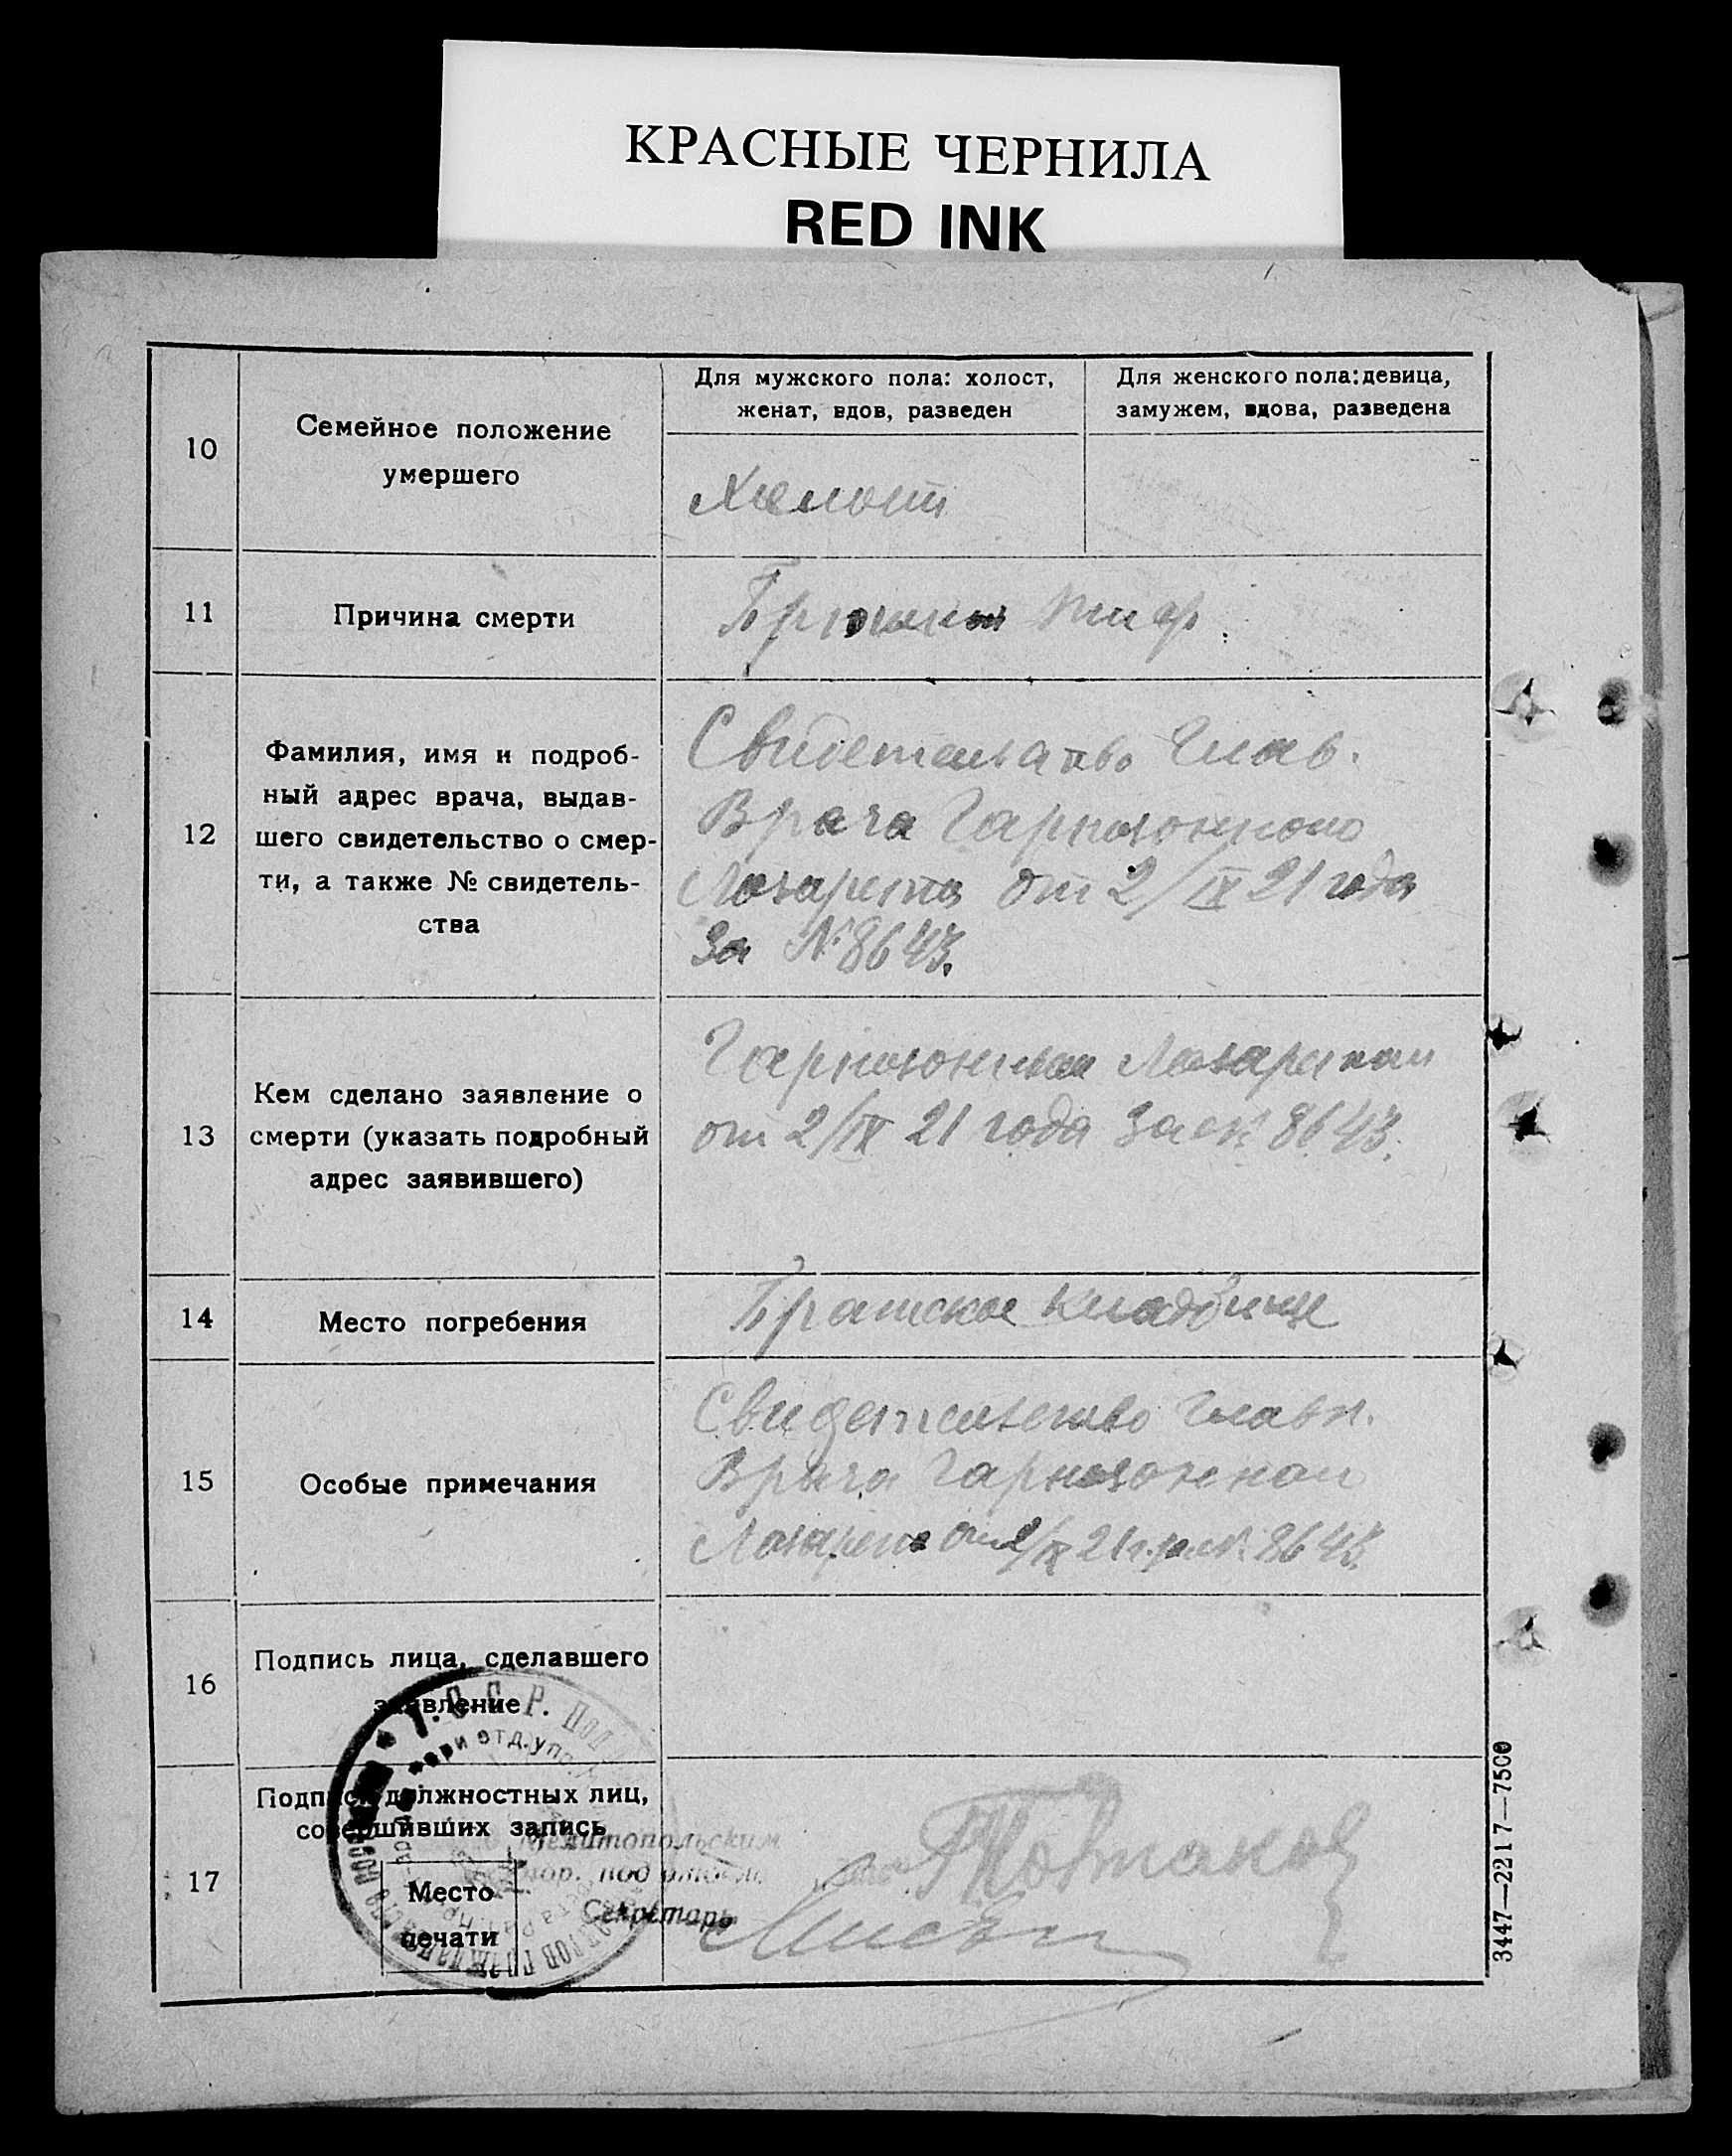 КРАСНЫЕ ЧЕРНИЛА
RED INK
10
Семейное положение
умершего
Для мужского пола: холост,
женат, вдов, разведен
Для женского пола: девица,
замужем, вдова, разведена
Холост
11
Причина смерти
Брюшной тиф.
12
Фамилия, имя и подроб-
ный адрес врача, выдав-
шего свидетельство о смер-
ти, а также № свидетель-
ства
Свидетельство Глав.
Врача Гарнизонного
Лазарета от 2/IX 21 года
За № 8643.
13
Кем сделано заявление о
смерти (указать подробный
адрес заявившего)
Гарнизонным Лазаретом
от 2/IX 21 года За № 8643.
14
Место погребения
Братское кладбище
15
Особые примечания
Свидетельство Главн.
Врача Гарнизонного
Лазарета от 2/IX 21 г. за № 8643.
16
Подпись лица, сделавшего
заявление
17
Подписи должностных лиц,
совершивших запись
Место
печати
Мелитопольским
Секретарь
3447—2217—7500